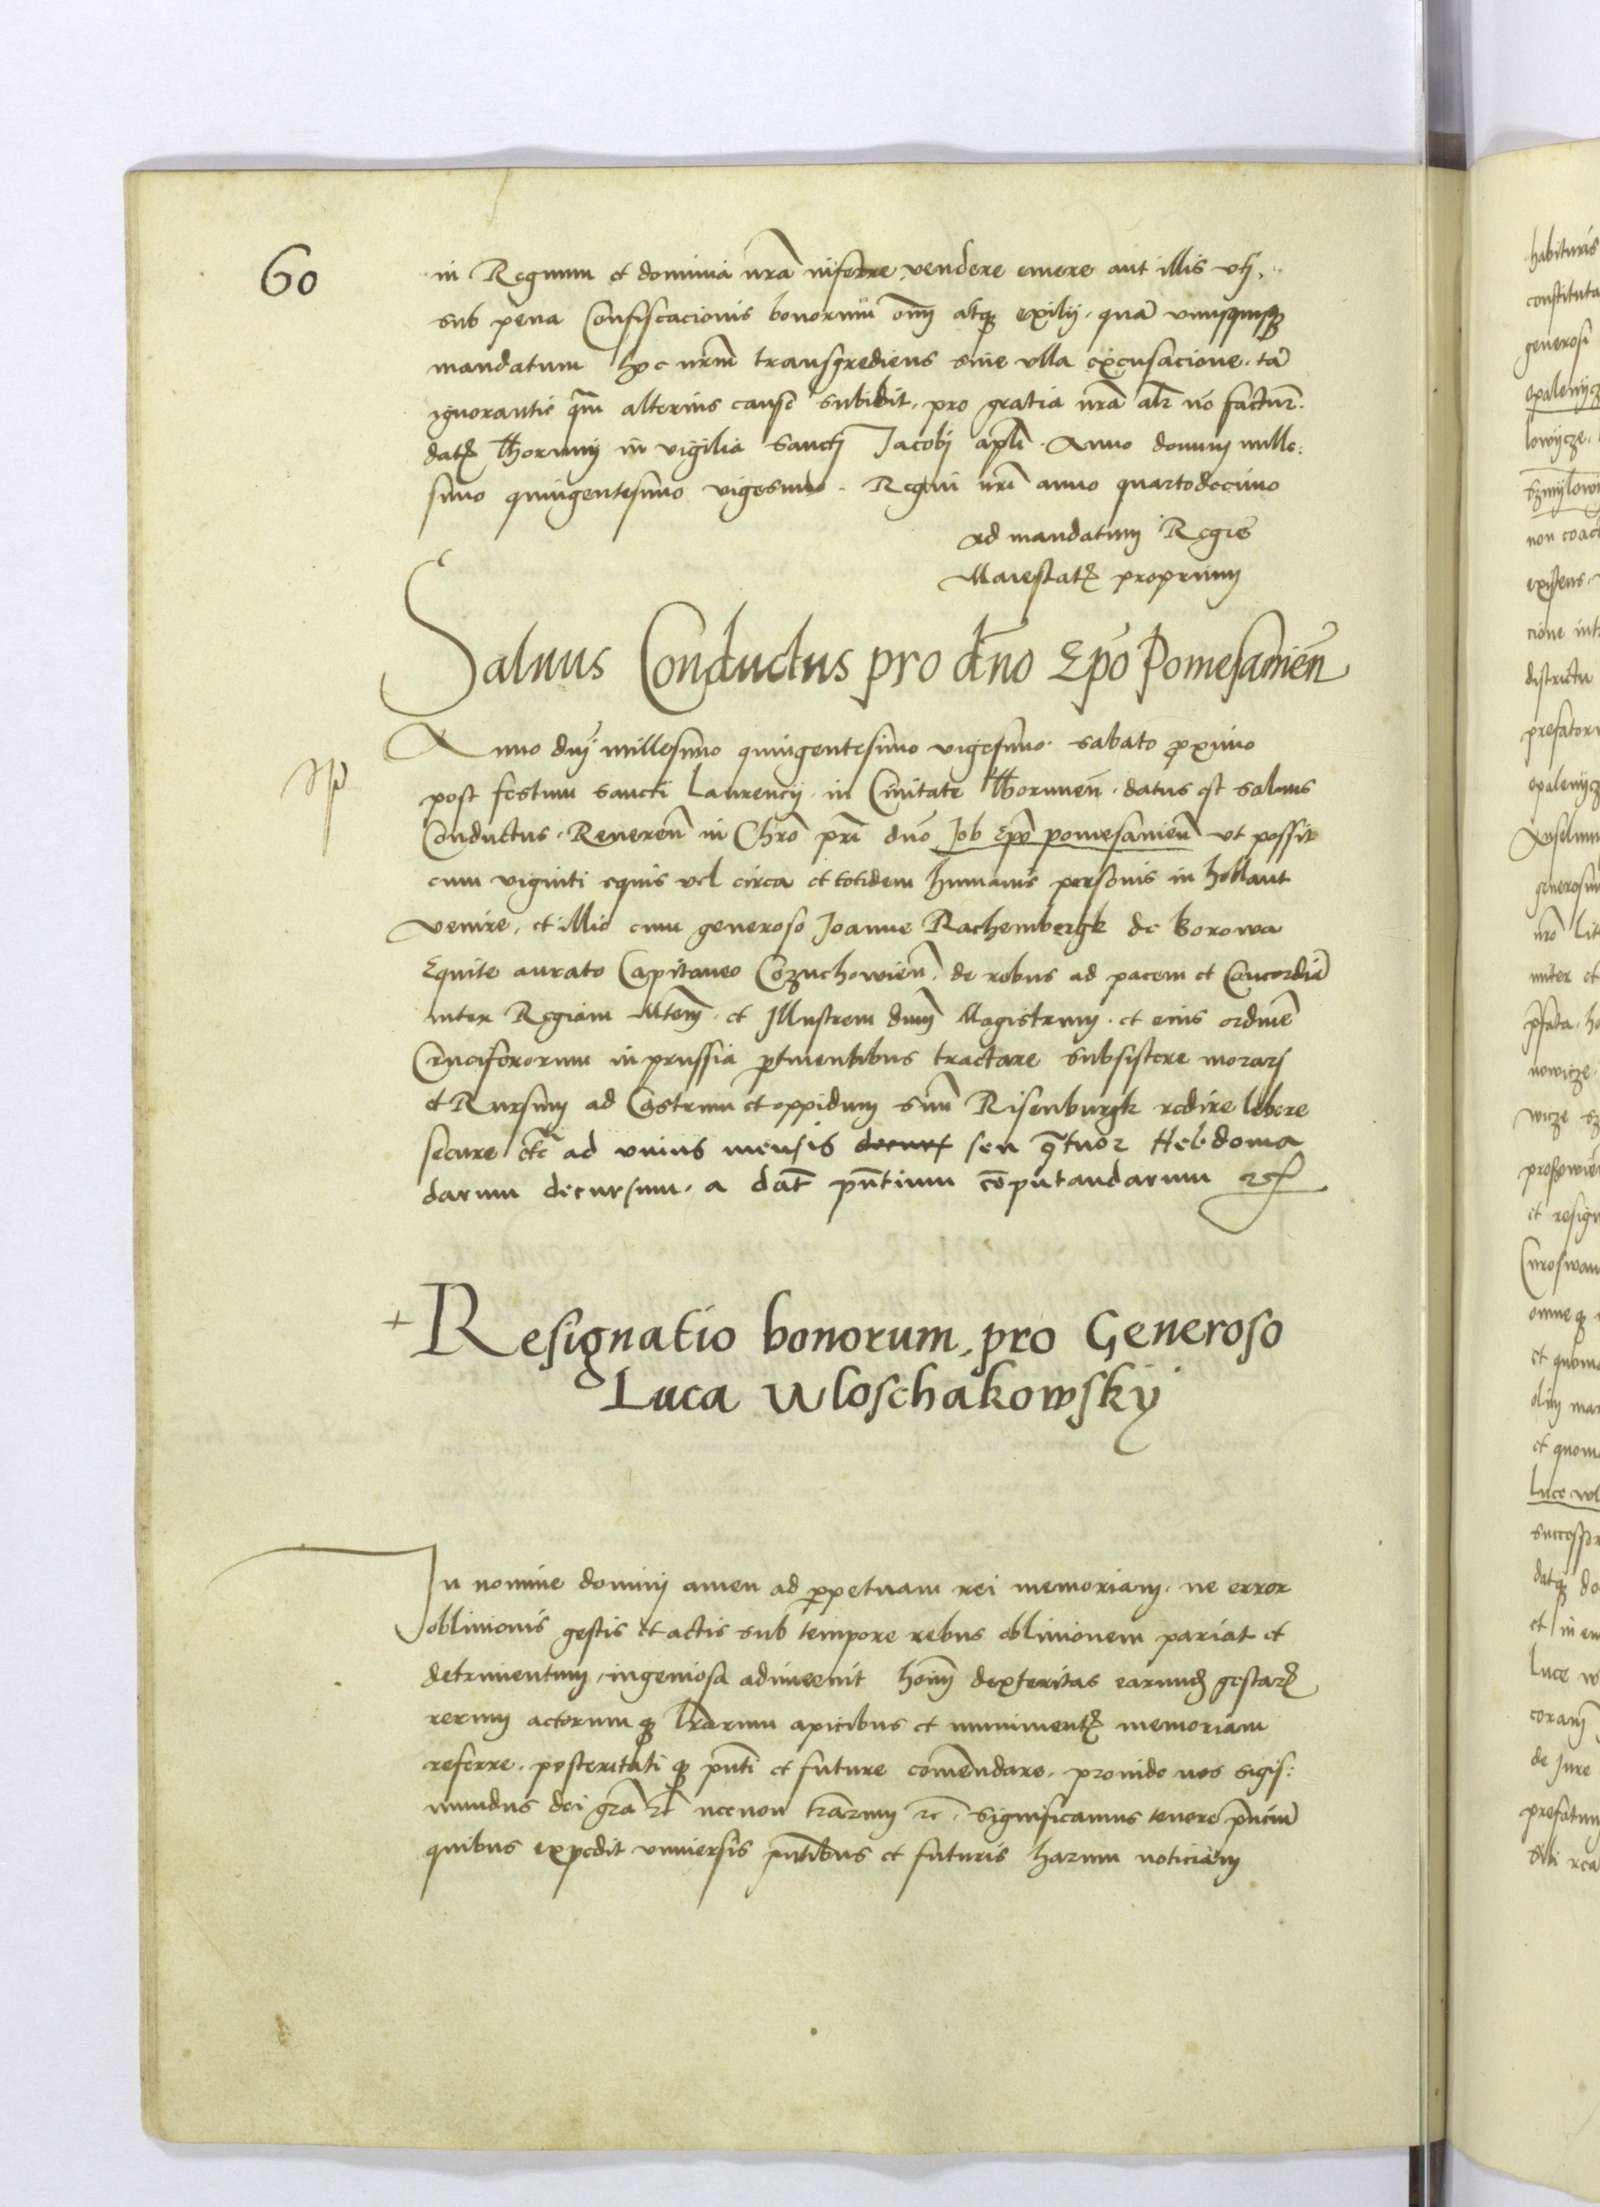 60
in Regnum et dominia nrã inferre vendere emere aut illis vtj.
sub pena Confiscacionis bonorum om̃ atqȝ exilij, quã vnusquisqȝ
mandatum hoc nr̃m transgrediens sine vlla excusacione, tã
ignorantie q̃m alterius cause subibit, pro gratia nrã alr̃ nõ factur̃.
datȝ Thorunij in vigilia Sanctj Jacobj apl̃i. Anno domini mille:
simo quingentesimo vigesimo. Regni nrĩ anno quartodecimo
ad mandatum Regie
Maiestatȝ proprium
Saluus Conductus pro dño Ep̃o Pomesanieñ
Anno dnj̃ millesimo quingentesimo vigesimo. sabato proximo
post festum sancti Laurencij in Ciuitate Thoruneñ. datus est saluus
Conductus. Reuereñ in Chrõ prĩ dnõ Job Ep̃o pomesanieñ vt possit
cum viginti equis vel circa et totidem humanis personis in hollant
venire, et illic cum generoso Joanne Rachembergk de Borowa
Equite aurato Capitaneo Cozuchowieñ. de rebus ad pacem et Concordiã
inter Regiam Mtem̃ et Jllustrem dnm̃ Magistrum et eius ordinẽ
Cruciferorum in prussia ꝑtinentibus tractare subsistere morarj
et Rursum ad Castrum et oppidum suũ Risenburgk redire libere
secure etc̃ ad vnius mensis decurs seu q̃tuor Hebdoma
darum decursum, a dat̃ pñtium cõputandarum
+ Resignatio bonorum, pro Generoso
Luca Wloschakowsky
In nomine dominj amen ad perpetuam rei memoriam. ne error
obliuionis gestis et actis sub tempore rebus obliuionem pariat et
detrimentum, ingeniosa adinuenit hoĩm dexteritas earundȝ gestarȝ
rerum actorumqȝ lrãrum apicibus et munimentȝ memoriam
referre, posteritatiqȝ pñti et future comẽndare, prouide nos sigis:
mundus dei grã etc̃ necnon trãrum etc, significamus tenore pñciũ
quibus expedit vniuersis pñtibus et futuris harum noticiam